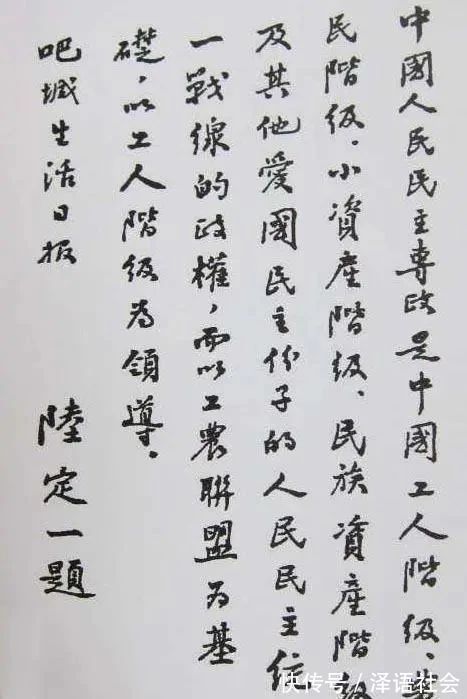 中國人民民主專政是中國工人階級、
民階級、小資產階級、民族資產階級
及其他愛國民主份子的人民民主統
一戰線的政權，而以工農聯盟为基
礎，以工人階級为領導．
吧城生活日报 陸定一題
快传号/泽语社会